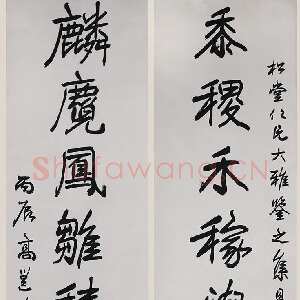 松堂仁兄大雅鑒之集
黍稷禾稼
麟麑鳳雛
丙辰高邕
Shufawang.cn